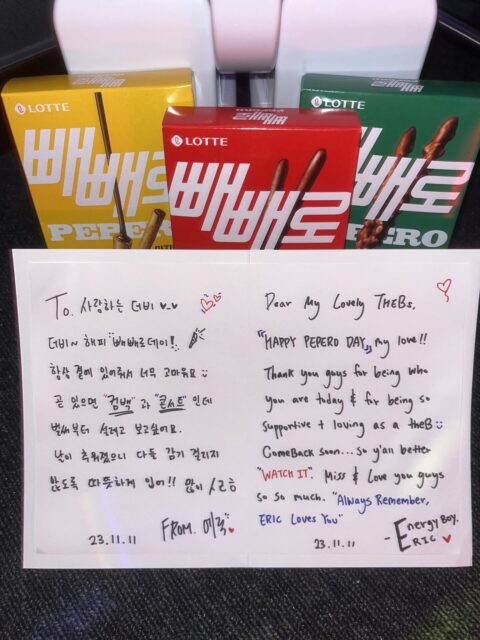 LOTTE
빼빼로
PEPE
LOTTE
빼빼로
LOTTE
빼빼로
PERO
To. 사랑하는 더비
더비~ 해피 "빼빼로데이!"
항상 곁에 있어줘서 너무 고마워요
곧 있으면 "컴백"과 "콘서트"인데
벌써부터 설레고 보고싶어요.
날이 추워졌으니 다들 감기 걸리지
않도록 따뜻하게 입어!! 많이 사랑해
23.11.11
FROM. 에릭
Dear My Lovely THEBs,
"HAPPY PEPERO DAY" my love!!
Thank you guys for being who
you are today & for being so
supportive + loving as a theB
ComeBack soon... so y'all better
"WATCH IT". Miss & Love you guys
so so much. "Always Remember,
ERIC Loves You"
23.11.11
- Energy Boy.
ERIC